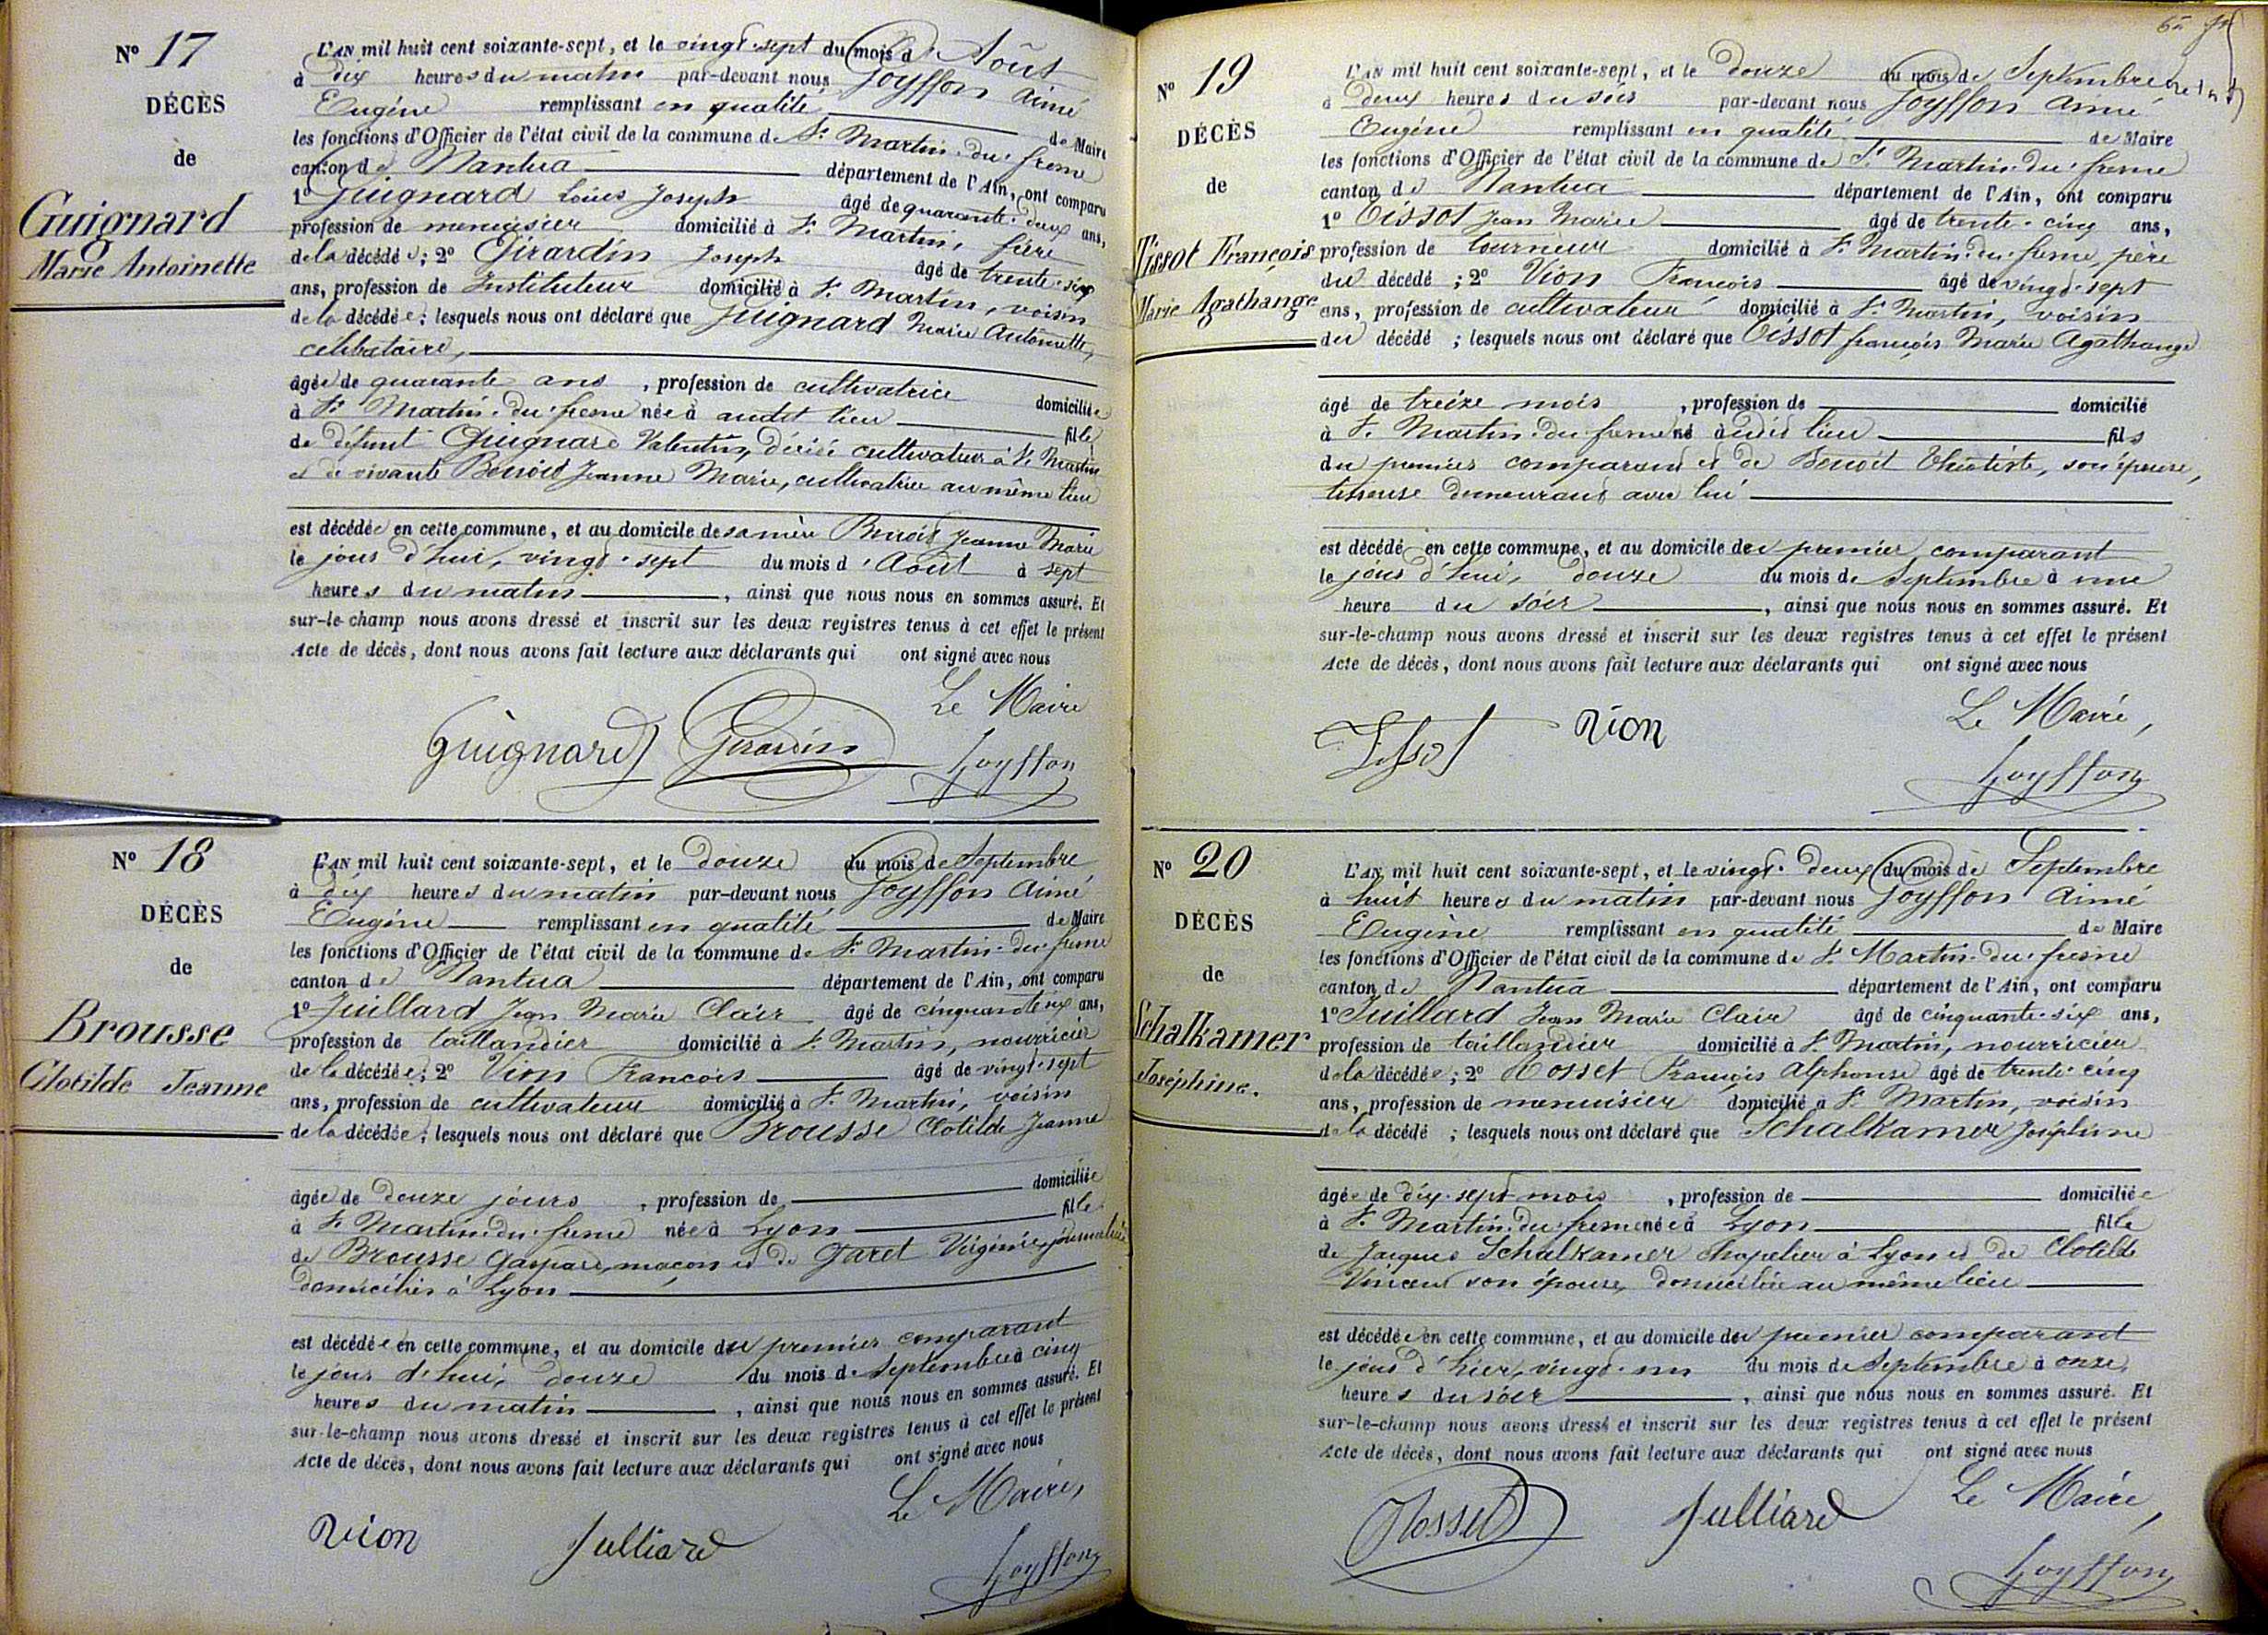 N° 17
DÉCÈS
de
Guignard
Marie Antoinette
L'AN mil huit cent soixante-sept, et le vingt-sept du mois d'Août
à dix heures du matin par-devant nous Goyffon Aimé
Eugène remplissant en qualité de Maire
les fonctions d'Officier de l'état civil de la commune de St Martin-du-fresne
canton de Nantua département de l'Ain, ont comparu
1° Guignard Louis Joseph âgé de quarante-deux ans,
profession de menuisier domicilié à St Martin, frère
de la décédée; 2° Girardin Joseph âgé de trente-six
ans, profession de Instituteur domicilié à St Martin, voisin
de la décédée; lesquels nous ont déclaré que Guignard Marie Antoinette,
célibataire,
âgée de quarante ans, profession de cultivatrice domiciliée
à St Martin-du-fresne née à audit lieu fille
de défunt Guignard Valentin, décédé cultivateur à St Martin
et de vivante Benoid Jeanne Marie, cultivatrice au même lieu
est décédée en cette commune, et au domicile de sa mère Benoid Jeanne Marie
le jour d'hui, vingt-sept du mois d'Août à sept
heures du matin, ainsi que nous nous en sommes assuré. Et
sur-le-champ nous avons dressé et inscrit sur les deux registres tenus à cet effet le présent
Acte de décès, dont nous avons fait lecture aux déclarants qui ont signé avec nous
Le Maire
Guignard Girardin Goyffon
N° 18
DÉCÈS
de
Brousse
Clotilde Jeanne
L'AN mil huit cent soixante-sept, et le douze du mois de Septembre
à dix heures du matin par-devant nous Goyffon Aimé
Eugène remplissant en qualité de Maire
les fonctions d'Officier de l'état civil de la commune de St Martin-du-fresne
canton de Nantua département de l'Ain, ont comparu
1° Juillard Jean Marie Clair âgé de cinquante six ans,
profession de taillandier domicilié à St Martin, nourricier
de la décédée; 2° Vion François âgé de vingt-sept
ans, profession de cultivateur domicilié à St Martin, voisin
de la décédée; lesquels nous ont déclaré que Brousse Clotilde Jeanne
âgée de douze jours, profession de domiciliée
à St Martin-du-fresne née à Lyon fille
de Brousse Gaspard, maçon et de Garet Virginie, journalière
domiciliés à Lyon
est décédée en cette commune, et au domicile du premier comparant
le jour d'hui, douze du mois de Septembre à cinq
heures du matin, ainsi que nous nous en sommes assuré. Et
sur-le-champ nous avons dressé et inscrit sur les deux registres tenus à cet effet le présent
Acte de décès, dont nous avons fait lecture aux déclarants qui ont signé avec nous
Le Maire,
Vion Julliard
Goyffon
N° 19
DÉCÈS
de
Tissot François
Marie Agathange
L'AN mil huit cent soixante-sept, et le douze du mois de Septembre
à deux heures du soir par-devant nous Goyffon Aimé
Eugène remplissant en qualité de Maire
les fonctions d'Officier de l'état civil de la commune de St Martin-du-fresne
canton de Nantua département de l'Ain, ont comparu
1° Tissot Jean Marie âgé de trente-cinq ans,
profession de tourneur domicilié à St Martin-du-fresne, père
du décédé; 2° Vion François âgé de vingt-sept
ans, profession de cultivateur domicilié à St Martin, voisin
du décédé; lesquels nous ont déclaré que Tissot françois Marie Agathange
âgé de treize mois, profession de domicilié
à St Martin-du-fresne né à audit lieu fils
du premier comparant et de Benoit Théotiste, son épouse,
tisseuse demeurant avec lui
est décédé en cette commune, et au domicile du premier comparant
le jour d'hui, douze du mois de Septembre à une
heure du soir, ainsi que nous nous en sommes assuré. Et
sur-le-champ nous avons dressé et inscrit sur les deux registres tenus à cet effet le présent
Acte de décès, dont nous avons fait lecture aux déclarants qui ont signé avec nous
Tissot Vion Le Maire,
Goyffon
N° 20
DÉCÈS
de
Schalkamer
Joséphine.
L'AN mil huit cent soixante-sept, et le vingt-deux du mois de Septembre
à huit heures du matin par-devant nous Goyffon Aimé
Eugène remplissant en qualité de Maire
les fonctions d'Officier de l'état civil de la commune de St Martin-du-fresne
canton de Nantua département de l'Ain, ont comparu
1° Juillard Jean Marie Clair âgé de cinquante-six ans,
profession de taillandier domicilié à St Martin, nourricier
de la décédée; 2° Rosset François Alphonse âgé de trente-cinq
ans, profession de menuisier domicilié à St Martin, voisin
de la décédé; lesquels nous ont déclaré que Schalkamer Joséphine
âgée de dix-sept mois, profession de domiciliée
à St Martin-du-fresne née à Lyon fille
de Jacques Schalkamer chapelier à Lyon et de Clotilde
Vincent son épouse, domiciliée au même lieu
est décédée en cette commune, et au domicile du premier comparant
le jour d'hier, vingt-un du mois de Septembre à onze
heures du soir, ainsi que nous nous en sommes assuré. Et
sur-le-champ nous avons dressé et inscrit sur les deux registres tenus à cet effet le présent
Acte de décès, dont nous avons fait lecture aux déclarants qui ont signé avec nous
Rosset Julliard Le Maire,
Goyffon